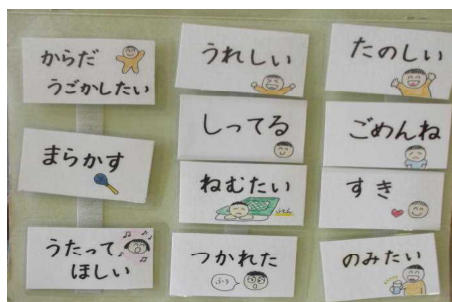 からだ
うごかしたい
まらかす
うたって
ほしい
うれしい
しってる
ねむたい
ふとん
つかれた
ふぅ
たのしい
ごめんね
すき
のみたい